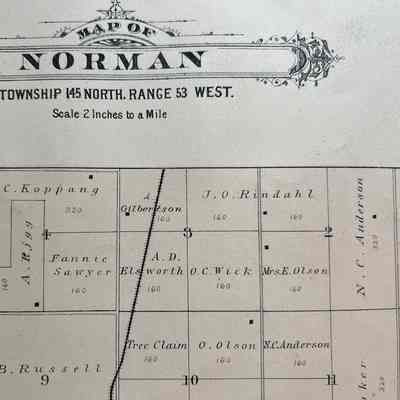 MAP OF
NORMAN
TOWNSHIP 145 NORTH, RANGE 53 WEST.
Scale 2 Inches to a Mile
C. Koppang
320
A. Gilbertson
160
J. O. Rindahl
160
160
N. C. Anderson
320
4
3
2
A. Rigg
160
Fannie
Sawyer
160
A. D.
Elsworth
160
O. C. Wick
160
Mrs. E. Olson
160
B. Russell
Tree Claim
160
O. Olson
160
N.C. Anderson
160
9
10
11